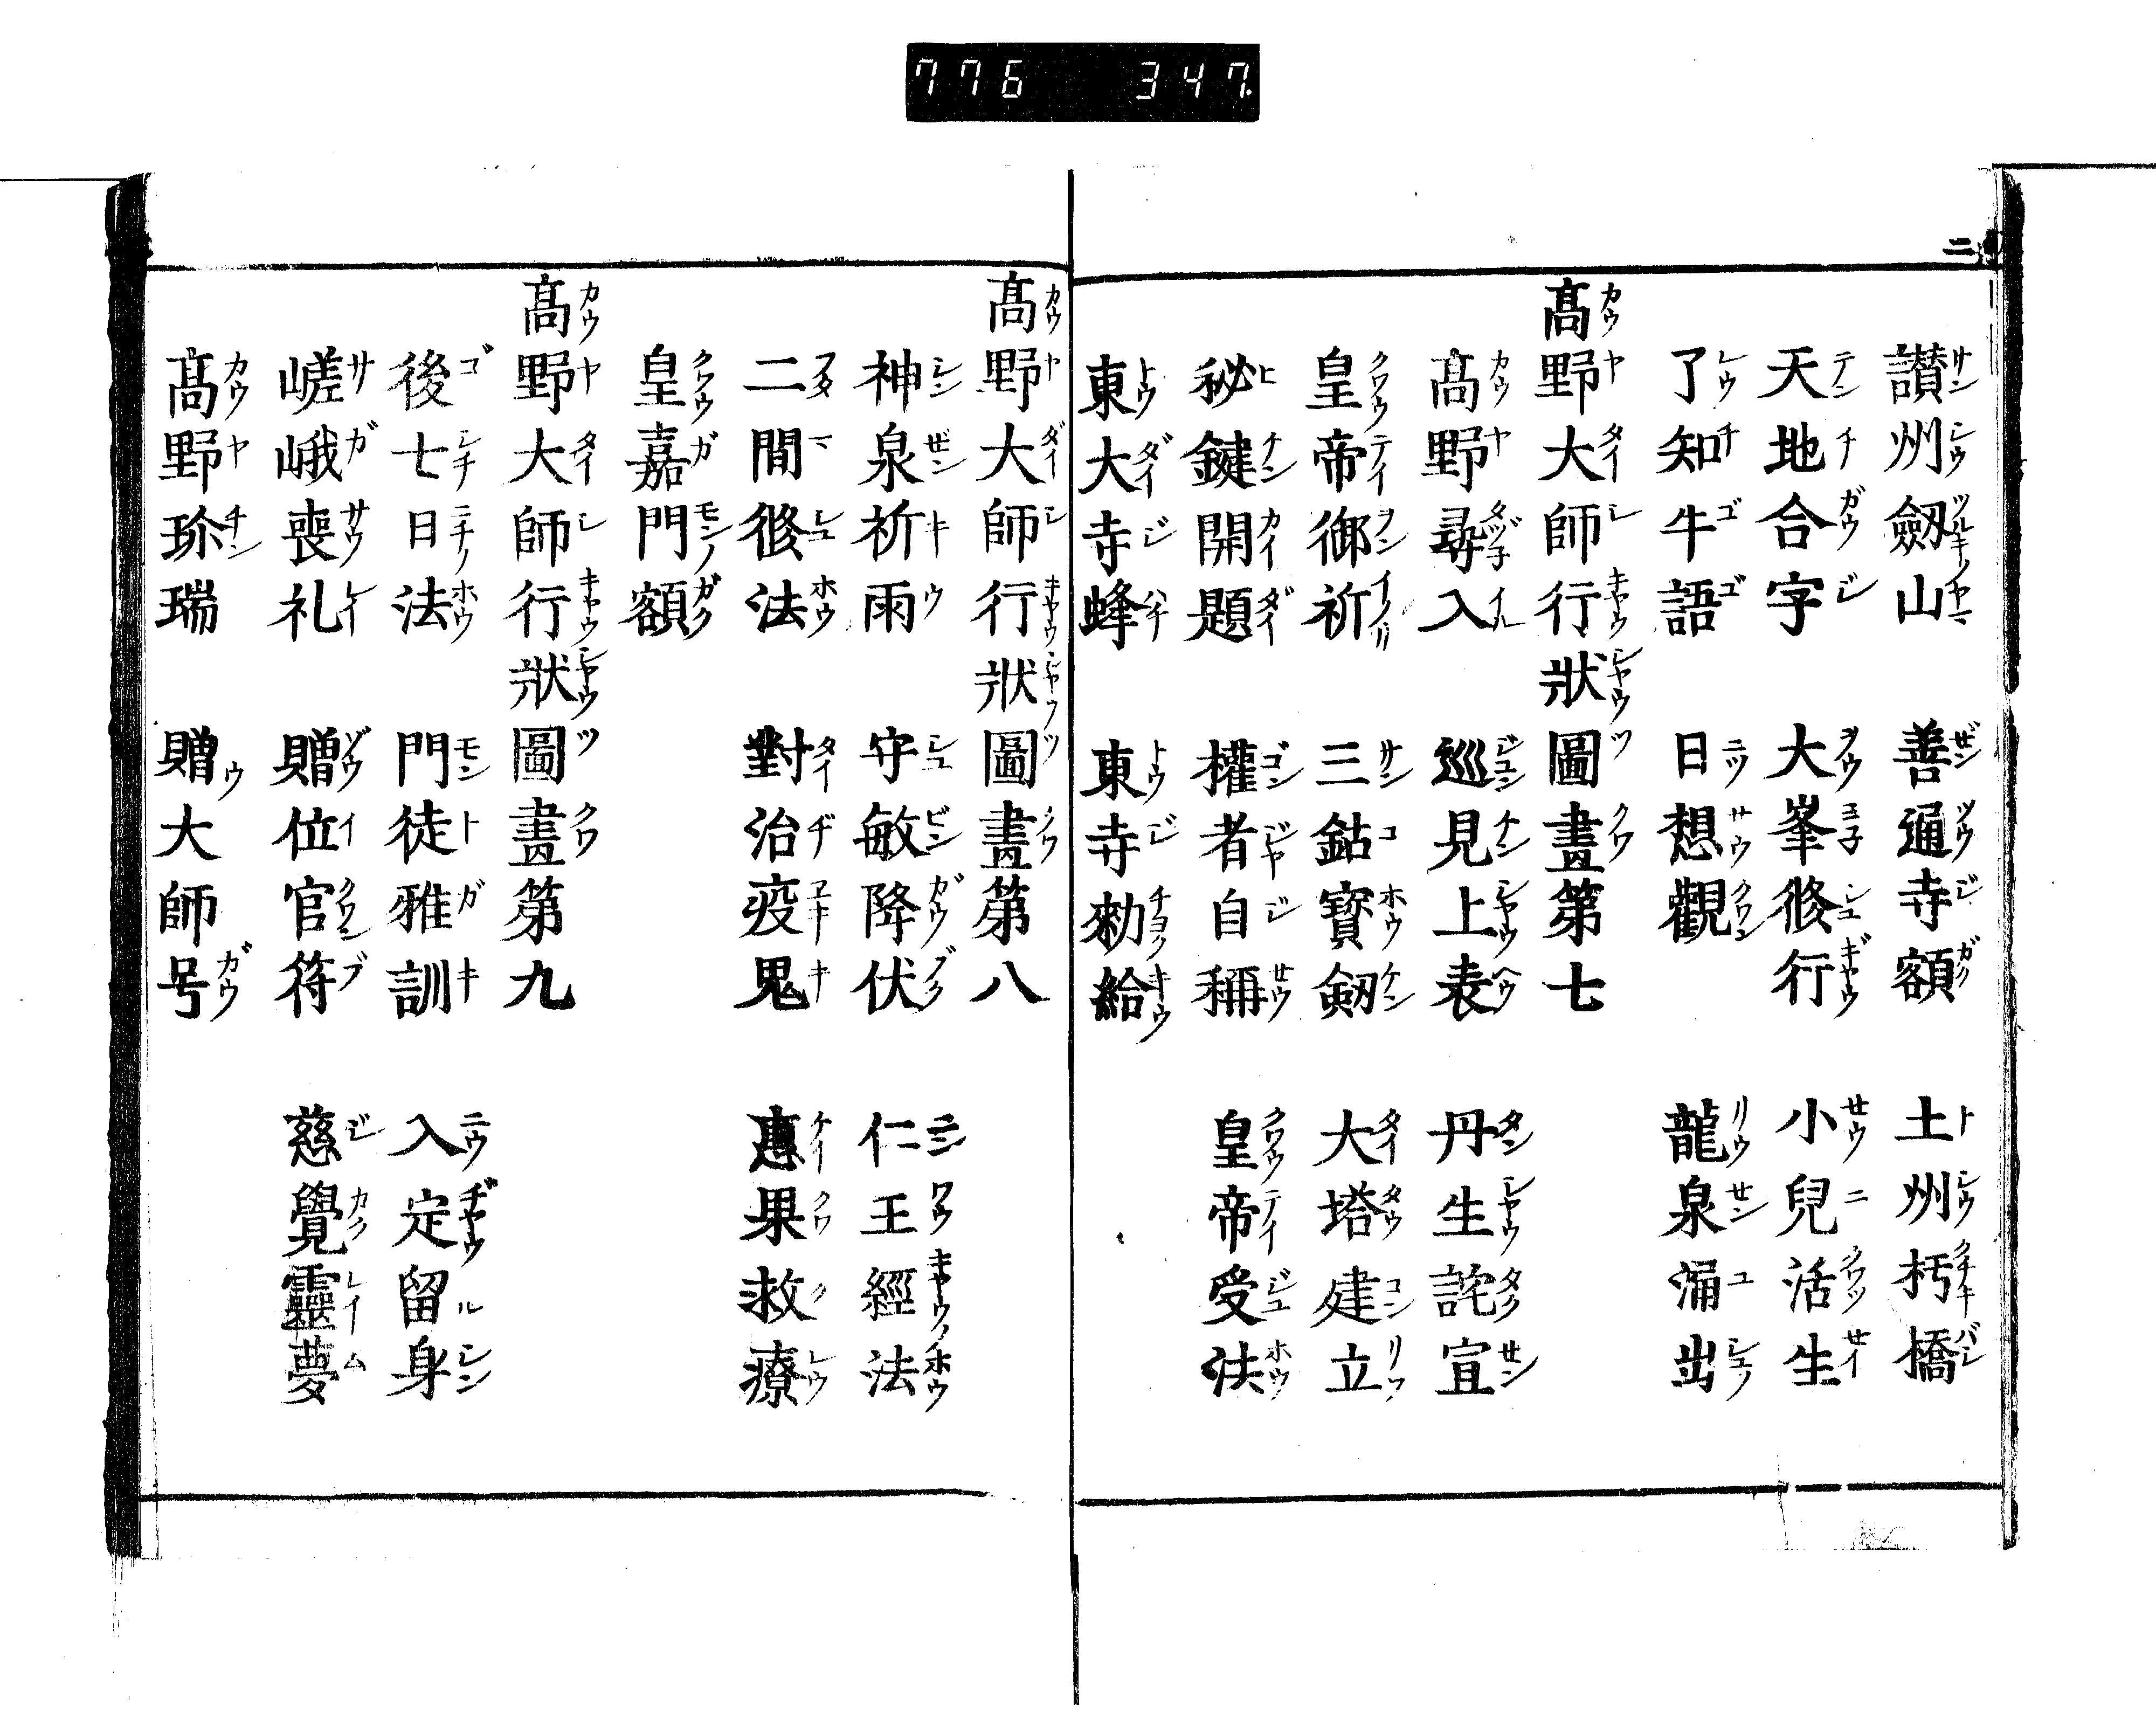 776 347.
二
讃州劔山 善通寺額 土州朽橋
天地合字 大峯修行 小兒活生
了知牛語 日想觀 龍泉涌出
高野大師行狀圖畫第七
高野尋入 巡見上表 丹生詫宣
皇帝御祈 三鈷寳劔 大塔建立
秘鍵開題 權者自稱 皇帝受法
東大寺蜂 東寺勅給
高野大師行狀圖畫第八
神泉祈雨 守敏降伏 仁王經法
二間修法 對治疫鬼 惠果救療
皇嘉門額
高野大師行狀圖畫第九
後七日法 門徒雅訓 入定留身
嵯峨喪礼 贈位官符 慈覺靈夢
高野珎瑞 贈大師号